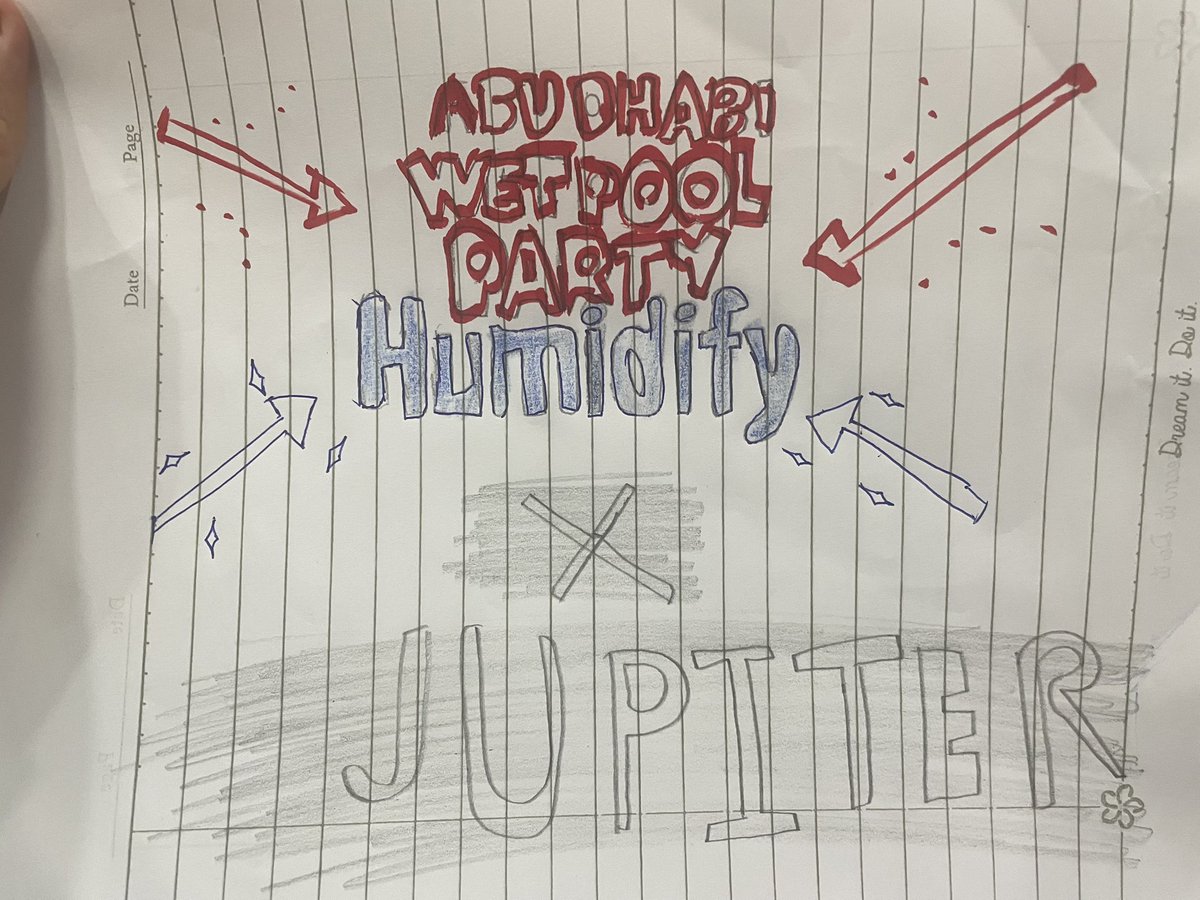 ABU DHABI
WET POOL
PARTY
Humidify
X
JUPITER
Page
Date
Dream it. Do it.